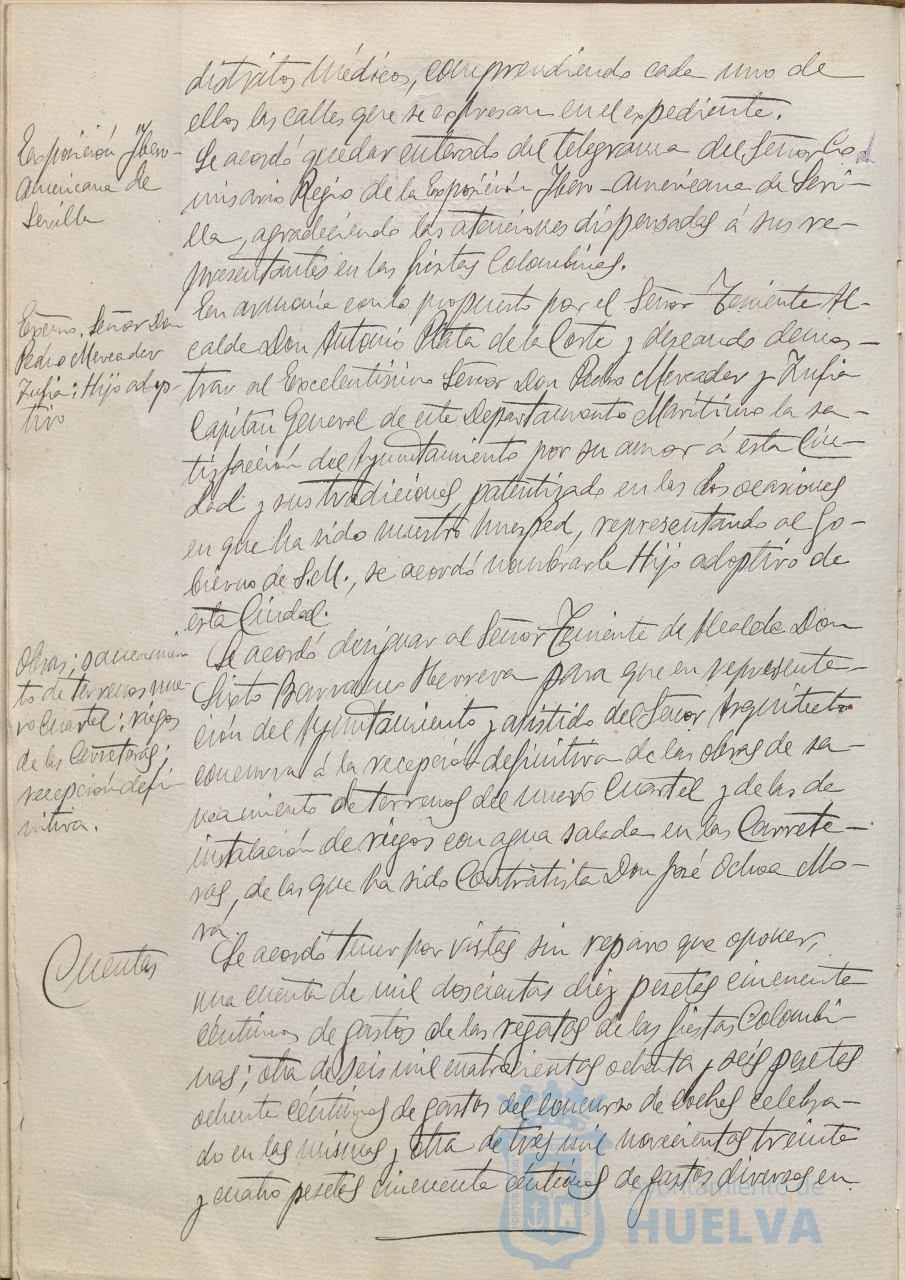 distritos médicos, comprendiendo cada uno de
ellos las calles que se expresan en el expediente.
Exposición Ybero-
Americana de
Sevilla
Se acordó quedar enterado del telegrama del Señor Co-
misario Regio de la Exposición Ybero-Americana de Sevi-
lla, agradeciendo las atenciones dispensadas á sus re-
presentantes en las fiestas Colombinas.
Excmo. Señor Don
Pedro Mercader
Zufia: Hijo adop-
tivo
En armonía con lo propuesto por el Señor Teniente Al-
calde Don Antonio Plata de la Corte y deseando demos-
trar al Excelentísimo Señor Don Pedro Mercader y Zufia
Capitán General de este Departamento Marítimo la sa-
tisfacción del Ayuntamiento por su amor á esta Ciu-
dad y sus tradiciones patentizado en las dos ocasiones
en que ha sido nuestro huésped, representando al Go-
bierno de S.M., se acordó nombrarle Hijo adoptivo de
esta Ciudad.
Obras: saneamien
to de terrenos nue-
vo Cuartel: riegos
de las Carreteras;
recepción defi-
nitiva.
Se acordó designar al Señor Teniente de Alcalde Don
Sixto Barranco Herrera para que en representa-
ción del Ayuntamiento y asistido del Señor Arquitecto
concurra á la recepción definitiva de las obras de sa-
neamiento de terrenos del nuevo Cuartel y de las de
instalación de riegos con agua salada en las Carrete-
ras, de las que ha sido Contratista Don José Ochoa Mo-
ra.
Cuentas
Se acordó tener por vistas sin reparo que oponer,
una cuenta de mil doscientas diez pesetas cincuenta
céntimos de gastos de las regatas de las fiestas Colombi-
nas; otra de seis mil cuatrocientas ochenta y seis pesetas
ochenta céntimos de gastos del concurso de coches celebra-
do en las mismas y otra de tres mil novecientas treinta
y cuatro pesetas cincuenta céntimos de gastos diversos en
Ayuntamiento de
HUELVA